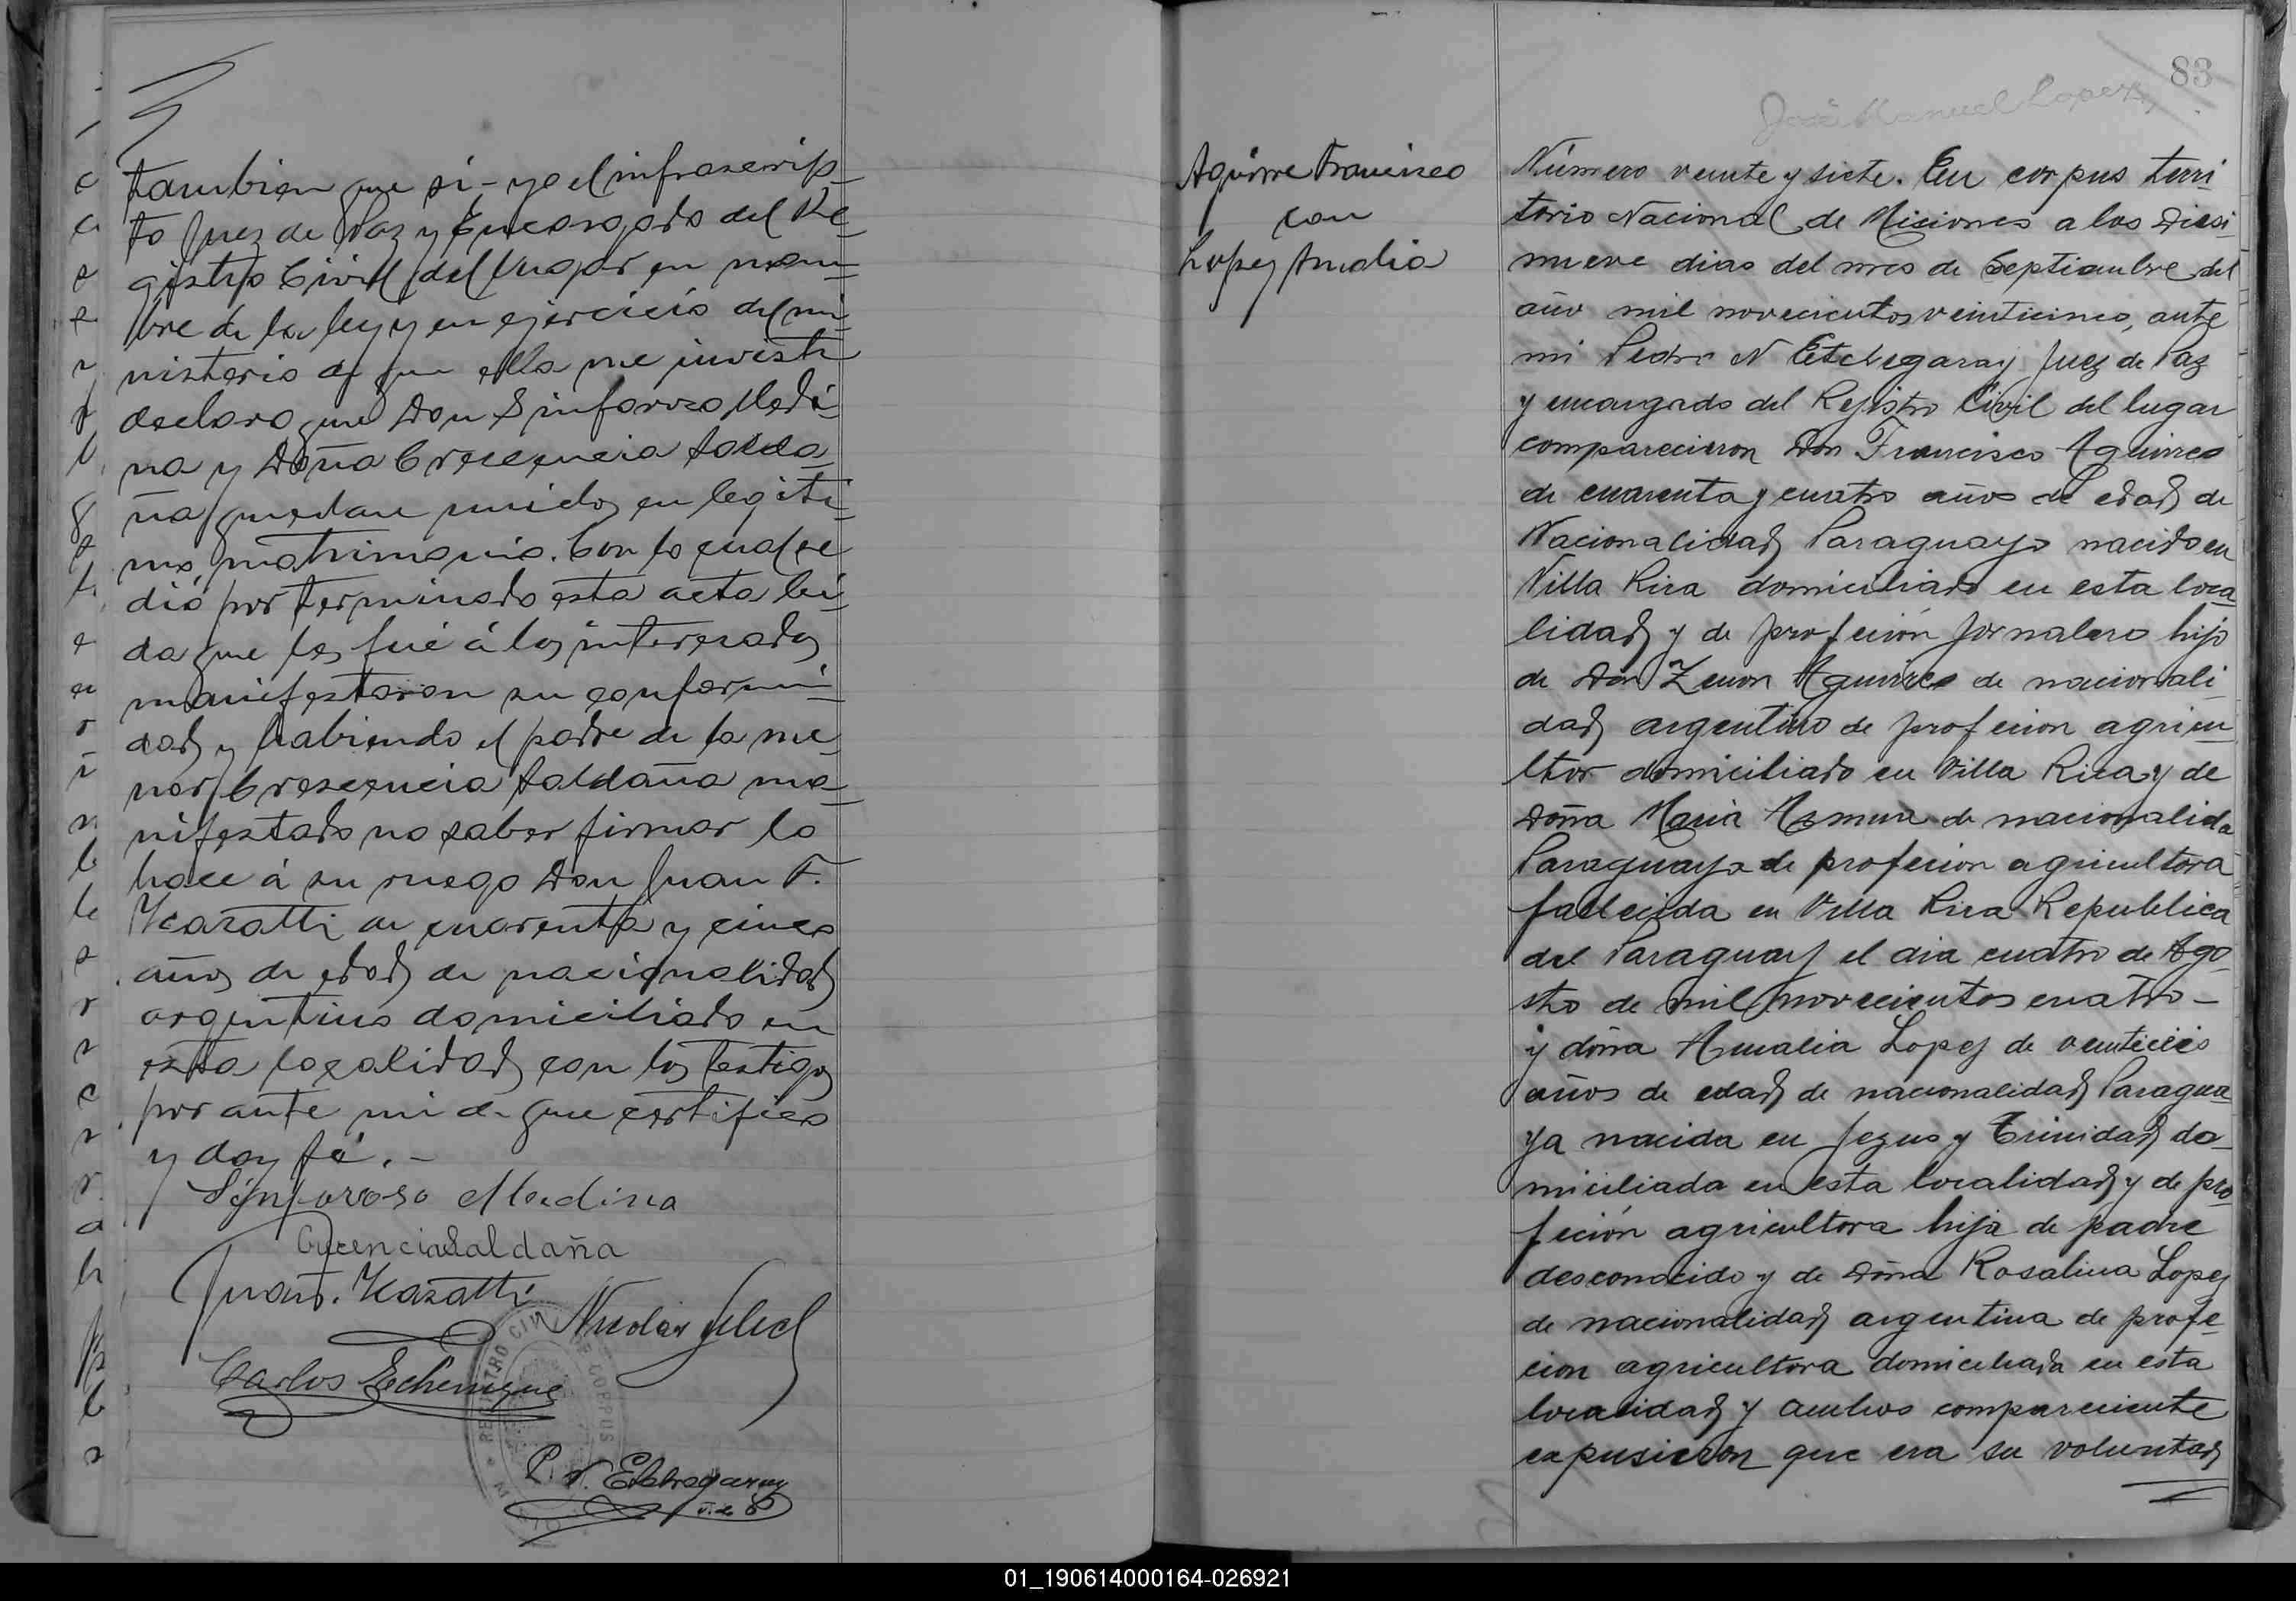 tambien que si - yo el infrascrip-
to Juez de Paz y Encargado del Re-
gistro Civil del lugar en nom-
bre de la ley y en ejercicio del mi-
nisterio de que ella me inviste
declaro que Don Sinforozo Medi-
na y Doña Crescencia Salda-
ña quedan unidos en legiti-
mo matrimonio. Con lo cual se
dió por terminado esta acta lei-
da que les fué á los interesados
manifestaron su conformi-
dad y habiendo el padre de la me-
nor Crescencia Saldaña ma-
nifestado no saber firmar lo
hace á su ruego Don Juan F.
de cuarenta y cinco
años de edad de nacionalidad
argentino domiciliado en
esta localidad con los testigos
por ante mi de que certifico
y doy fé. -
Sinforoso Medina
Crecencia Saldaña
Juan F.
Nicolas
Carlos Echenique
REGISTRO CIVIL CORPUS
P. N. Etchegaray
J. de P
83
José Manuel Lopez
Aguirre Francisco
con
Lopez Amalia
Número veinte y siete. En corpus terri
torio Nacional de Misiones a los Diesi-
nueve dias del mes de Septiembre del
año mil novecientos veinticinco, ante
mi Pedro N Etchegaray Juez de Paz
y encargado del Rejistro Civil del lugar
comparecieron Don Francisco Aguirre
de cuarenta y cuatro años de edad de
Nacionalidad Paraguayo nacido en
Villa Rica domiciliado en esta loca-
lidad y de profeción jornalero hijo
de Don Zenon Aguirre de nacionali-
dad argentino de profecion agricu-
ltor domiciliado en Villa Rica y de
Doña Maria de nacionalida
Paraguaya de profecion agricultora
fallecida en Villa Rica Republica
del Paraguay el dia cuatro de Ago-
sto de mil novecientos cuatro -
y doña Amalia Lopez de
años de edad de nacionalidad Paragua-
ya nacida en Jezus y Trinidad do-
miciliada en esta localidad y de pro-
feción agricultora hija de padre
desconocido y de Doña Rosalina Lopez
de nacionalidad argentina de profe-
cion agricultora domiciliada en esta
localidad y ambos compareciente
expusieron que era su voluntad
01_190614000164-026921